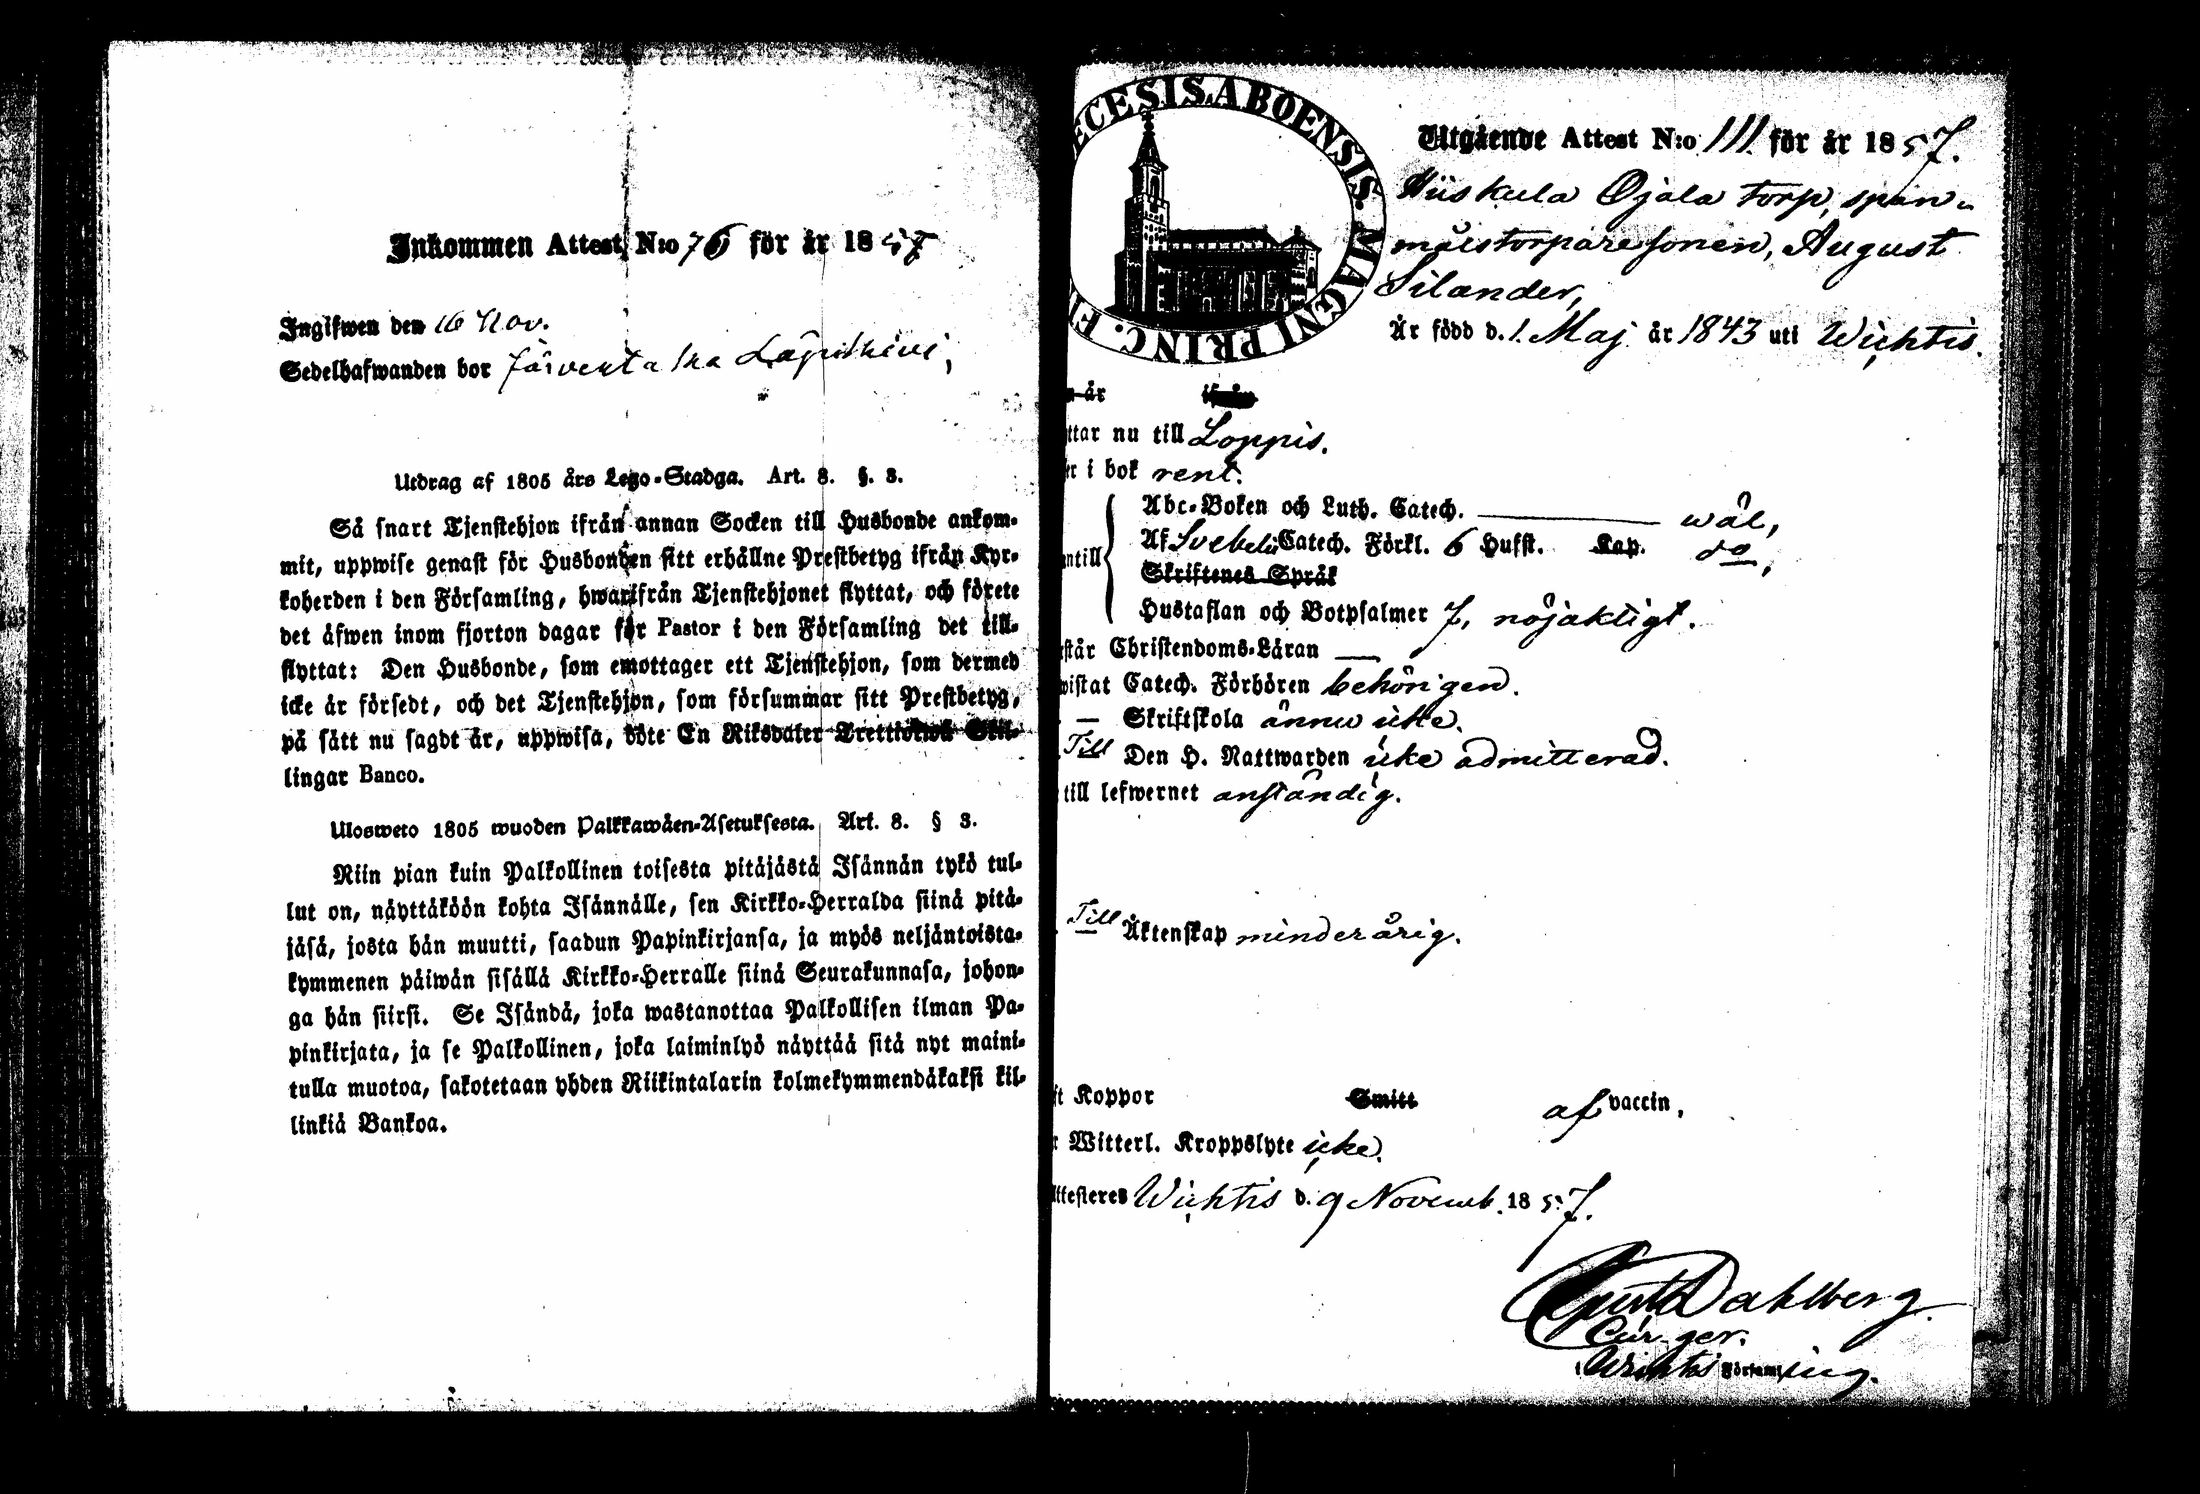 Inkommen Attest N:o 76 för år 1857
Ingifwen den 16 Nov.
Sedelhafwanden bor Järventaka Läpikivi,
Utdrag af 1805 års Lego-Stadga. Art. 8. §. 3.
Så snart Tjenstehjon ifrån annan Socken till Husbonde ankom-
mit, uppwise genast för Husbonden sitt erhållne Prestbetyg ifrån Kyr-
koherden i den Församling, hwarifrån Tjenstehjonet flyttat, och förete
det äfwen inom fjorton dagar för Pastor i den Församling det till-
flyttat: Den Husbonde, som emottager ett Tjenstehjon, som dermed
icke är försedt, och det Tjenstehjon, som försummar sitt Prestbetyg,
på sätt nu sagdt är, uppwisa, böte En Riksdaler Trettiotwå Skil-
lingar Banco.
Ulosweto 1805 wuoden Palkkawäen-Asetuksesta. Art. 8. § 3.
Niin pian kuin Palkollinen toisesta pitäjästä Isännän tykö tul-
lut on, näyttäköön kohta Isännälle, sen Kirkko-Herralda siinä pitä-
jäsä, josta hän muutti, saadun Papinkirjansa, ja myös neljäntoista-
kymmenen päiwän sisällä Kirkko-Herralle siinä Seurakunnasa, johon-
ga hän siirsi. Se Isändä, joka wastanottaa Palkollisen ilman Pa-
pinkirjata, ja se Palkollinen, joka laiminlyö näyttää sitä nyt maini-
tulla muotoa, sakotetaan yhden Riikintalarin kolmekymmendäkaksi kil-
linkiä Bankoa.
ECESIS ABOENSIS. MAGNI PRINC. FI
Utgående Attest N:o 111. för år 1857.
Hiiskula Ojala torp, span-
målstorpare sonen, August
Silander,
Är född d. 1. Maj år 1843 uti Wichtis.
n år ifrån
ttar nu till Loppis.
er i bok rent.
Abc-Boken och Luth. Catech. wäl,
ntill Af Svebelii Catech. Förkl. 6 Hufst. Kap. do,
Skriftenes Språk
Hustaflan och Botpsalmer 7, nöjaktigt.
står Christendoms-Läran —
wistat Catech. Förhören behörigen.
— Skriftskola ännu icke.
Till Den H. Nattwarden icke admitterad.
till lefwernet anständig.
Till Äktenskap minderårig.
ft Koppor Smitt af vaccin,
r Witterl. Kroppslyte icke.
ttesteres Wichtis d. 9 Novemb. 1857.
Dahlberg.
Cur. ger.
i Wichtis Församling.